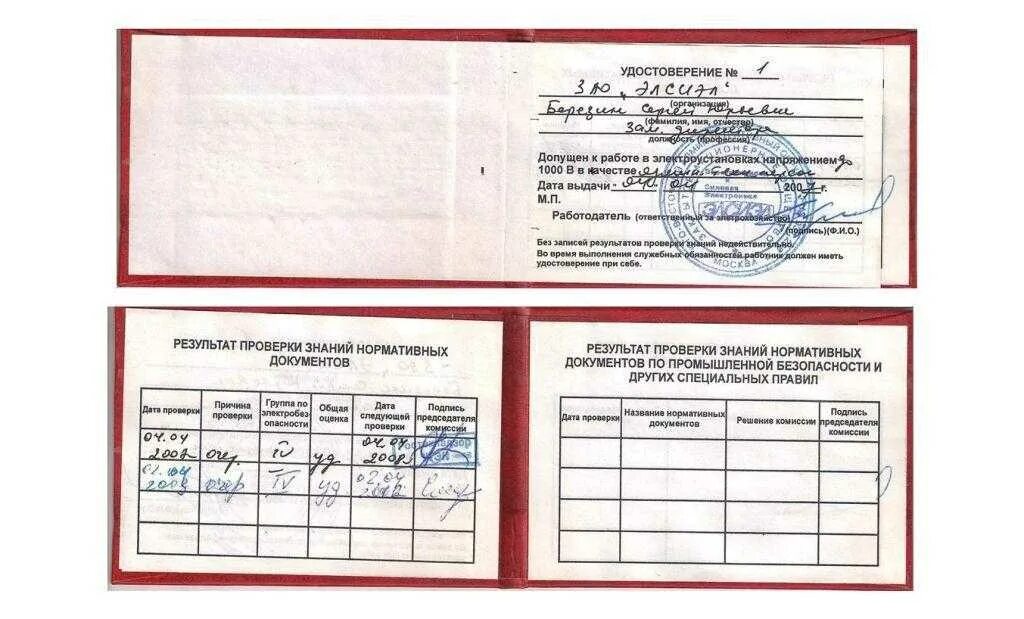 УДОСТОВЕРЕНИЕ № 1
ЗАО „ЭЛСИЭЛ“
(организация)
Березин Сергей Юрьевич
(фамилия, имя, отчество)
Зам. директора
должность (профессия)
Допущен к работе в электроустановках напряжением до
1000 В в качестве
Дата выдачи 04. 04 2007 г.
М.П.
Работодатель (ответственный за элетрохозяйство)
(подпись)(Ф.И.О.)
Без записей результатов проверки знаний недействительно.
Во время выполнения служебных обязанностей работник должен иметь
удостоверение при себе.
Силовая
Электроника
ЭЛСИЭЛ
МОСКВА
РЕЗУЛЬТАТ ПРОВЕРКИ ЗНАНИЙ НОРМАТИВНЫХ
ДОКУМЕНТОВ
Дата проверки Причина проверки Группа по электробезопасности Общая оценка Дата следующей проверки Подпись председателя комиссии
04.04 2007 очер. IV уд 04.04 2008
02.04 очер IV уд 02.04
РЕЗУЛЬТАТ ПРОВЕРКИ ЗНАНИЙ НОРМАТИВНЫХ
ДОКУМЕНТОВ ПО ПРОМЫШЛЕННОЙ БЕЗОПАСНОСТИ И
ДРУГИХ СПЕЦИАЛЬНЫХ ПРАВИЛ
Дата проверки Название нормативных документов Решение комиссии Подпись председателя комиссии